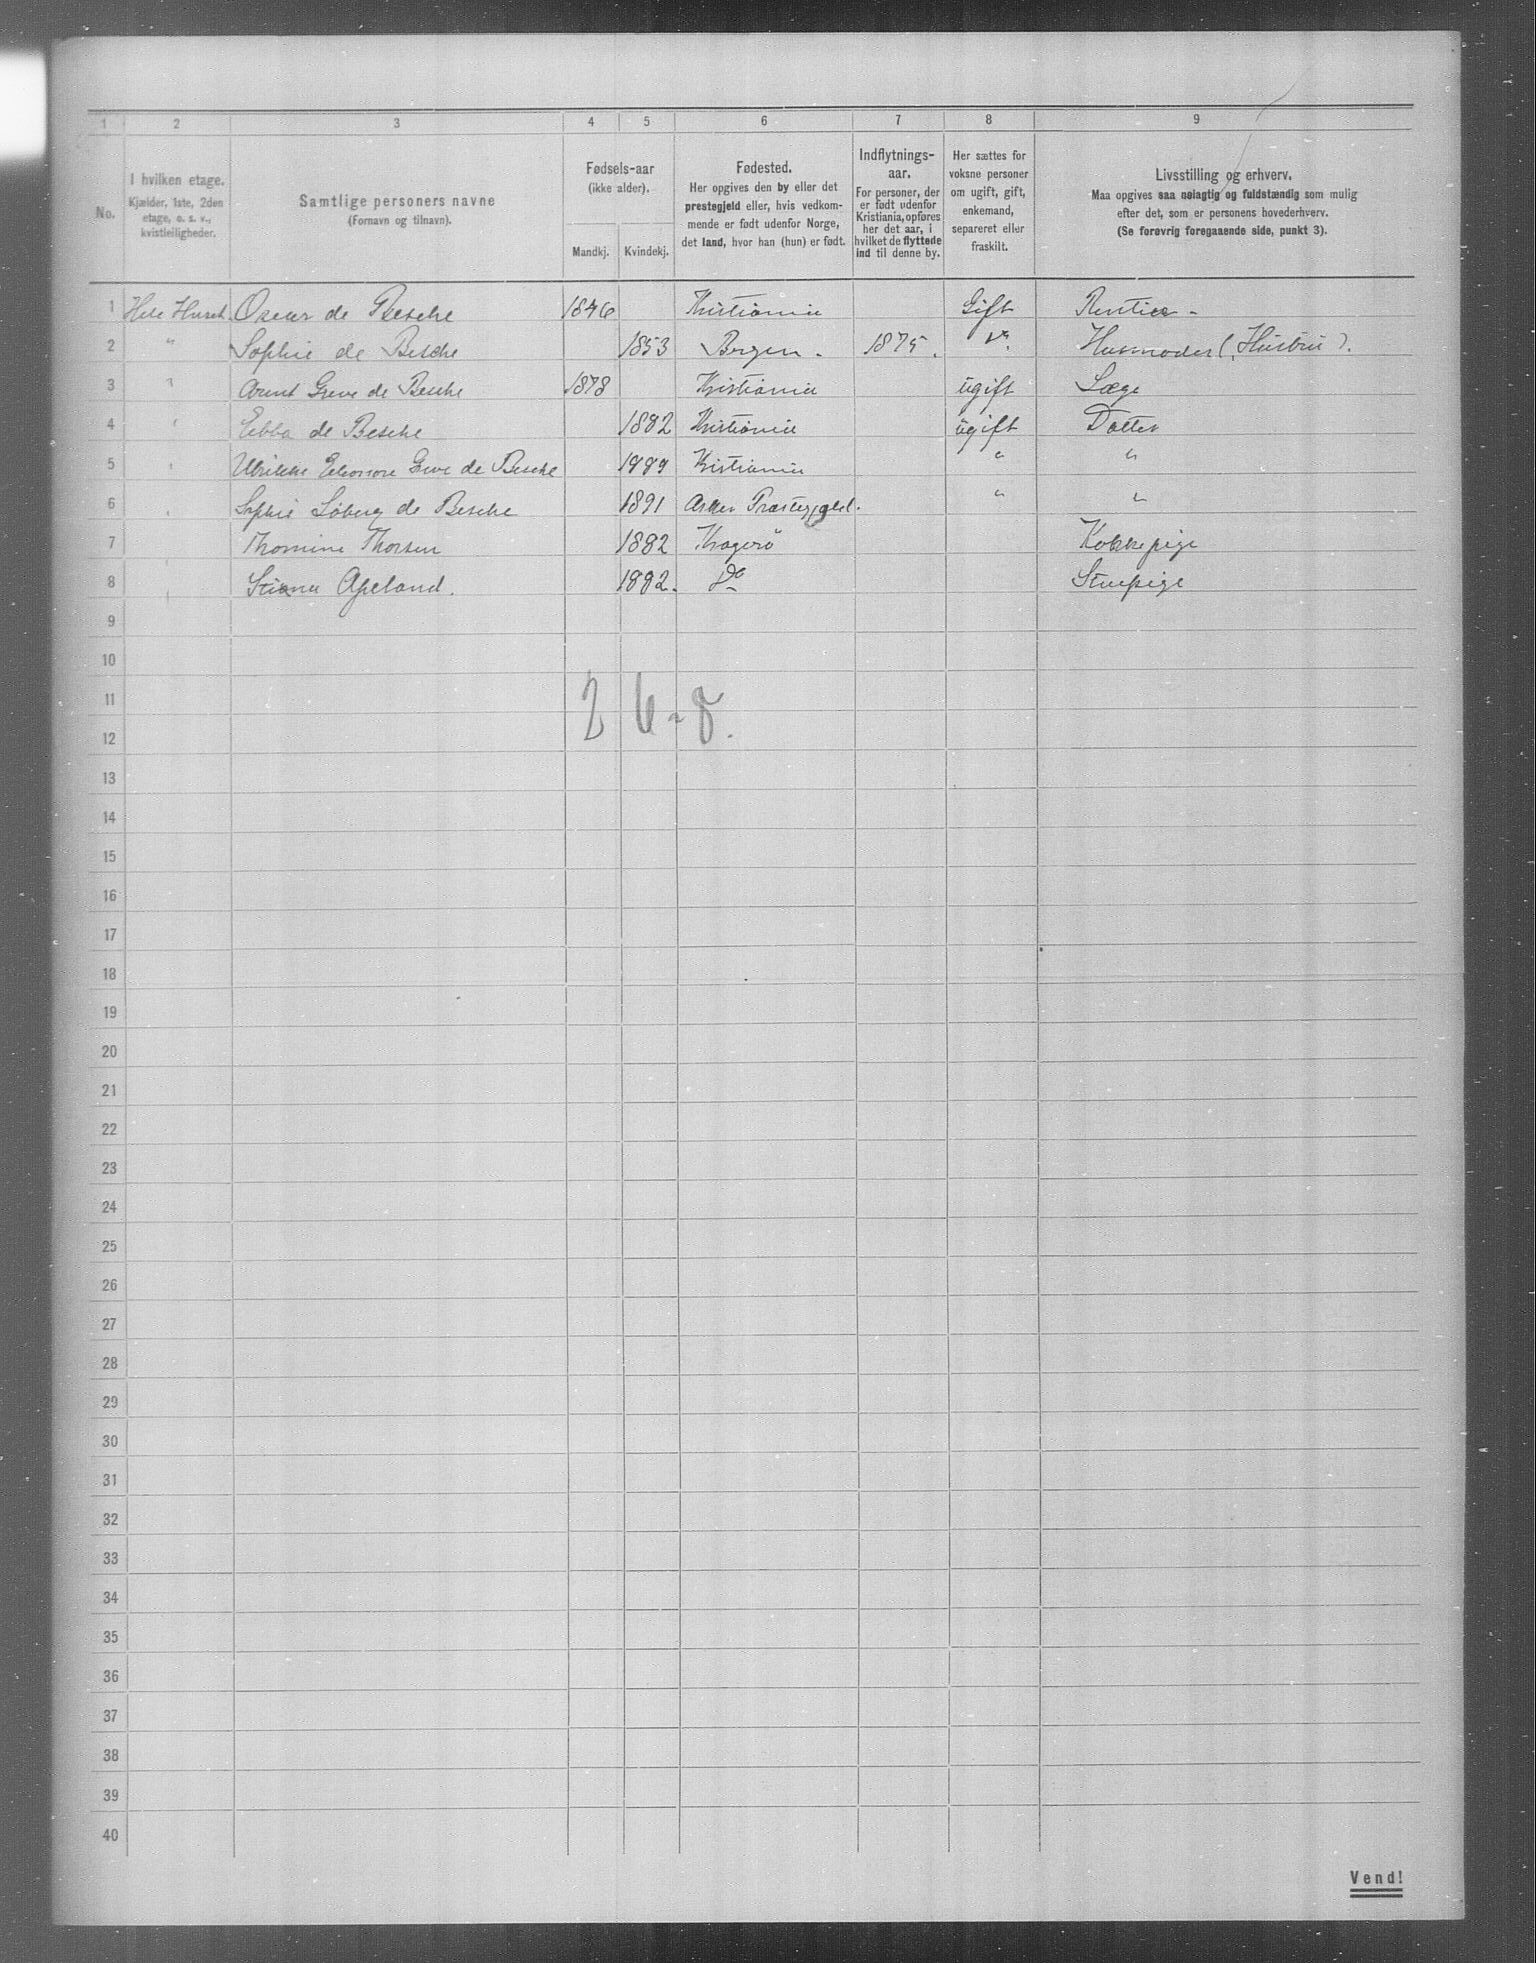 1 2 3 4 5 6 7 8 9
No.
I hvilken etage.
Kjælder, 1ste, 2den
etage, o. s. v.,
kvistleiligheder.
Samtlige personers navne
(Fornavn og tilnavn).
Fødsels-aar
(ikke alder).
Mandkj. Kvindekj.
Fødested.
Her opgives den by eller det
prestegjeld eller, hvis vedkom-
mende er født udenfor Norge,
det land, hvor han (hun) er født.
Indflytnings-
aar.
For personer, der
er født udenfor
Kristiania, opføres
her det aar, i
hvilket de flyttede
ind til denne by.
Her sættes for
voksne personer
om ugift, gift,
enkemand,
separeret eller
fraskilt.
Livsstilling og erhverv.
Maa opgives saa nøiagtig og fuldstændig som mulig
efter det, som er personens hovederhverv.
(Se forøvrig foregaaende side, punkt 3).
1 Hele Huset. Oscar de Besche 1846 Kristiania Gift Rentier -
2 " Sophie de Besche 1853 Bergen. 1875. do Husmoder (Hustru).
3 " Arent Greve de Besche 1878 Kristiania ugift Læge
4 " Ebba de Besche 1882 Kristiania ugift Datter
5 " Ulrikke Eleonore Greve de Besche 1889 Kristiania " "
6 " Sophie Søberg de Besche 1891 Asker Præstegjeld. " "
7 Thomine Thorsen 1882 Kragerö Kokkepige
8 Apeland. 1882. Do Stuepige
9
10
11
2 6 - 8.
12
13
14
15
16
17
18
19
20
21
22
23
24
25
26
27
28
29
30
31
32
33
34
35
36
37
38
39
40
Vend!